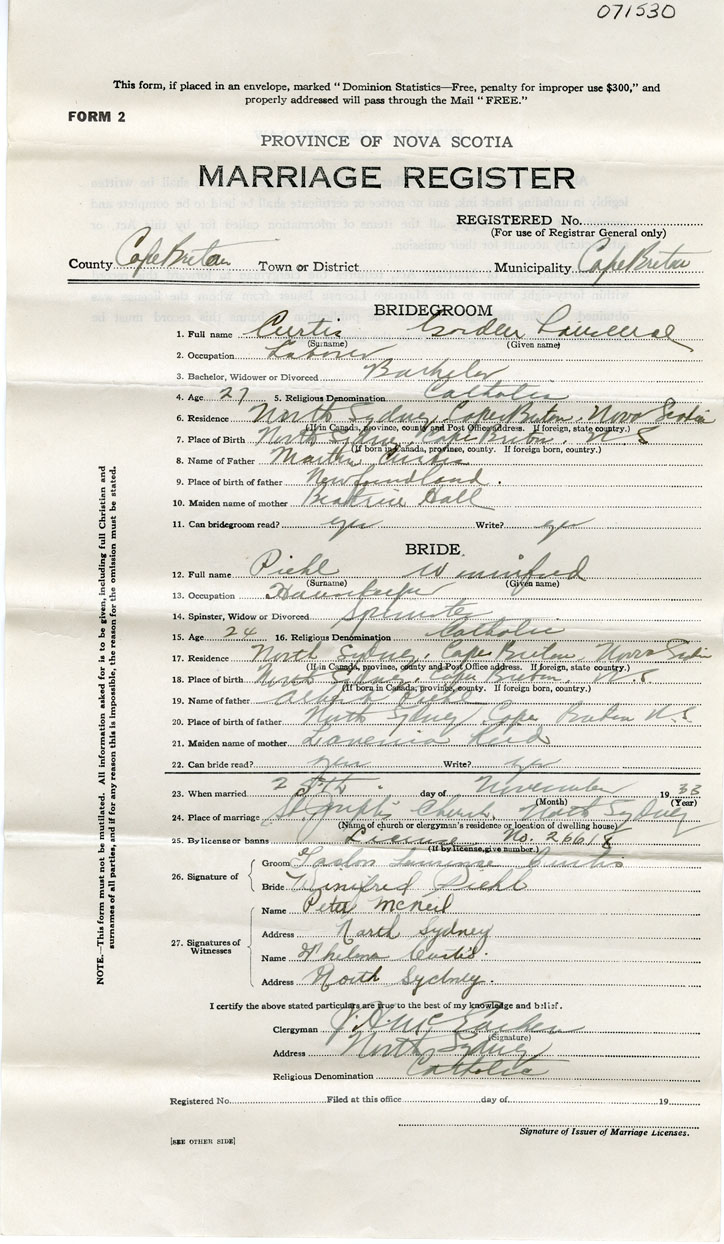 071530
This form, if placed in an envelope, marked "Dominion Statistics—Free, penalty for improper use $300," and
properly addressed will pass through the Mail "FREE."
FORM 2
PROVINCE OF NOVA SCOTIA
MARRIAGE REGISTER
REGISTERED No.
(For use of Registrar General only)
County Cape Breton Town or District Municipality Cape Breton
BRIDEGROOM
1. Full name Curtis Gordon
(Surname) (Given name)
2. Occupation Laborer
3. Bachelor, Widower or Divorced Bachelor
4. Age 27 5. Religious Denomination Catholic
6. Residence North Sydney, Cape Breton, Nova Scotia
(If in Canada, province, county and Post Office address. If foreign, state country.)
7. Place of Birth North Sydney, Cape Breton, N S
(If born in Canada, province, county. If foreign born, country.)
8. Name of Father Martin Curtis
9. Place of birth of father Newfoundland.
10. Maiden name of mother Beatrice Hall
11. Can bridegroom read? yes Write? yes
BRIDE
12. Full name Piehl Winnifred
(Surname) (Given name)
13. Occupation
14. Spinster, Widow or Divorced Spinster
15. Age 24 16. Religious Denomination Catholic
17. Residence North Sydney, Cape Breton, Nova Scotia
(If in Canada, province, county and Post Office address. If foreign, state country.)
18. Place of Birth North Sydney, Cape Breton, N.S
(If born in Canada, province, county. If foreign born, country.)
19. Name of father Albert Piehl
20. Place of birth of father North Sydney Cape Breton N.S
21. Maiden name of mother Reid
22. Can bride read? yes Write? yes
23. When married day of November 1933
(Month) (Year)
24. Place of marriage St Joseph's Church, North Sydney
(Name of church or clergyman's residence or location of dwelling house)
25. By license or banns License No.
(If by license, give number.)
26. Signature of
Groom Curtis
Bride Winifred Piehl
27. Signatures of Witnesses
Name Peter McNeil
Address North Sydney
Name Thelma Curtis.
Address North Sydney.
I certify the above stated particulars are true to the best of my knowledge and belief.
Clergyman
(Signature)
Address North Sydney
Religious Denomination Catholic
Registered No. Filed at this office day of 19
Signature of Issuer of Marriage Licenses.
[SEE OTHER SIDE]
NOTE.—This form must not be mutilated. All information asked for is to be given, including full Christian and
surnames of all parties, and if for any reason this is impossible, the reason for the omission must be stated.